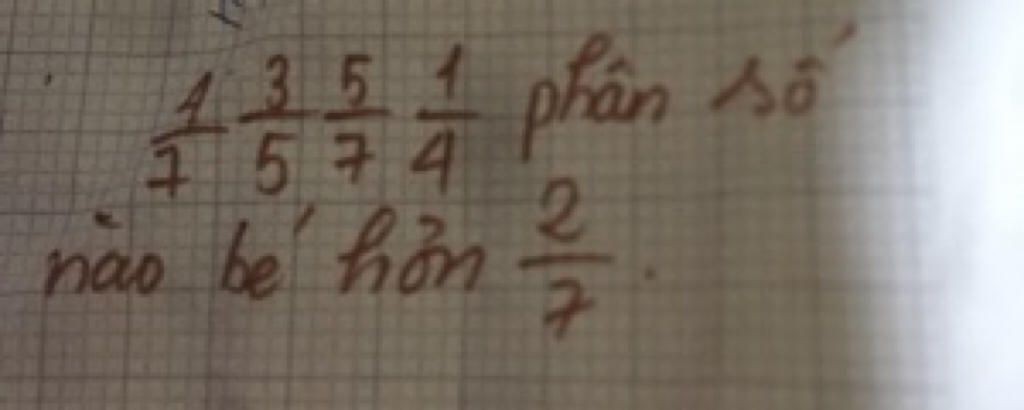 1/7 3/5 5/7 1/4 phân số
nào bé hơn 2/7.